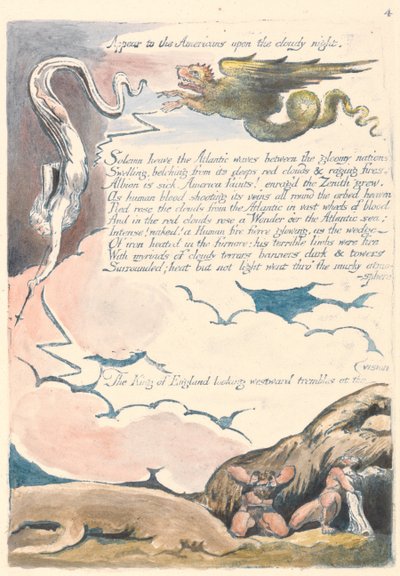 4
Appear to the Americans upon the cloudy night.
Solemn heave the Atlantic waves between the gloomy nations
Swelling, belching from its deeps red clouds & raging fires!
Albion is sick. America faints! enrag'd the Zenith grew.
As human blood shooting its veins all round the orbed heaven
Red rose the clouds from the Atlantic in vast wheels of blood
And in the red clouds rose a Wonder o'er the Atlantic sea;
Intense! naked! a Human fire fierce glowing, as the wedge
Of iron heated in the furnace; his terrible limbs were fire
With myriads of cloudy terrors banners dark & towers
Surrounded; heat but not light went thro' the murky atmo-
-sphere
(vision
The King of England looking westward trembles at the